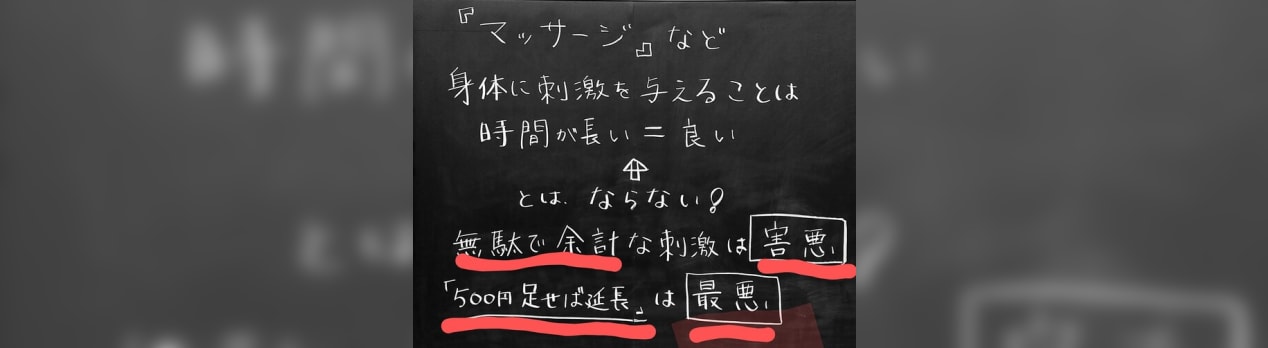 『マッサージ』など
身体に刺激を与えることは
時間が長い＝良い
⇧
とは、ならない!
無駄で余計な刺激は害悪、
「500円足せば延長」は最悪、